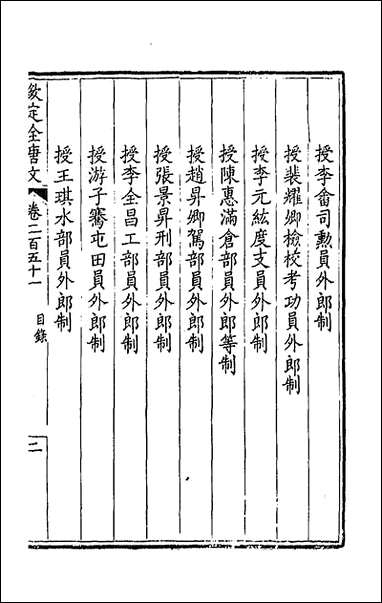 授李畬司勳員外郎制
授裴耀卿檢校考功員外郎制
授李元紘度支員外郎制
授陳惠滿倉部員外郎等制
授趙昇卿駕部員外郎制
授張景昇刑部員外郎制
授李全昌工部員外郎制
授游子騫屯田員外郎制
授王琪水部員外郎制
欽定全唐文 卷二百五十一 目錄 二